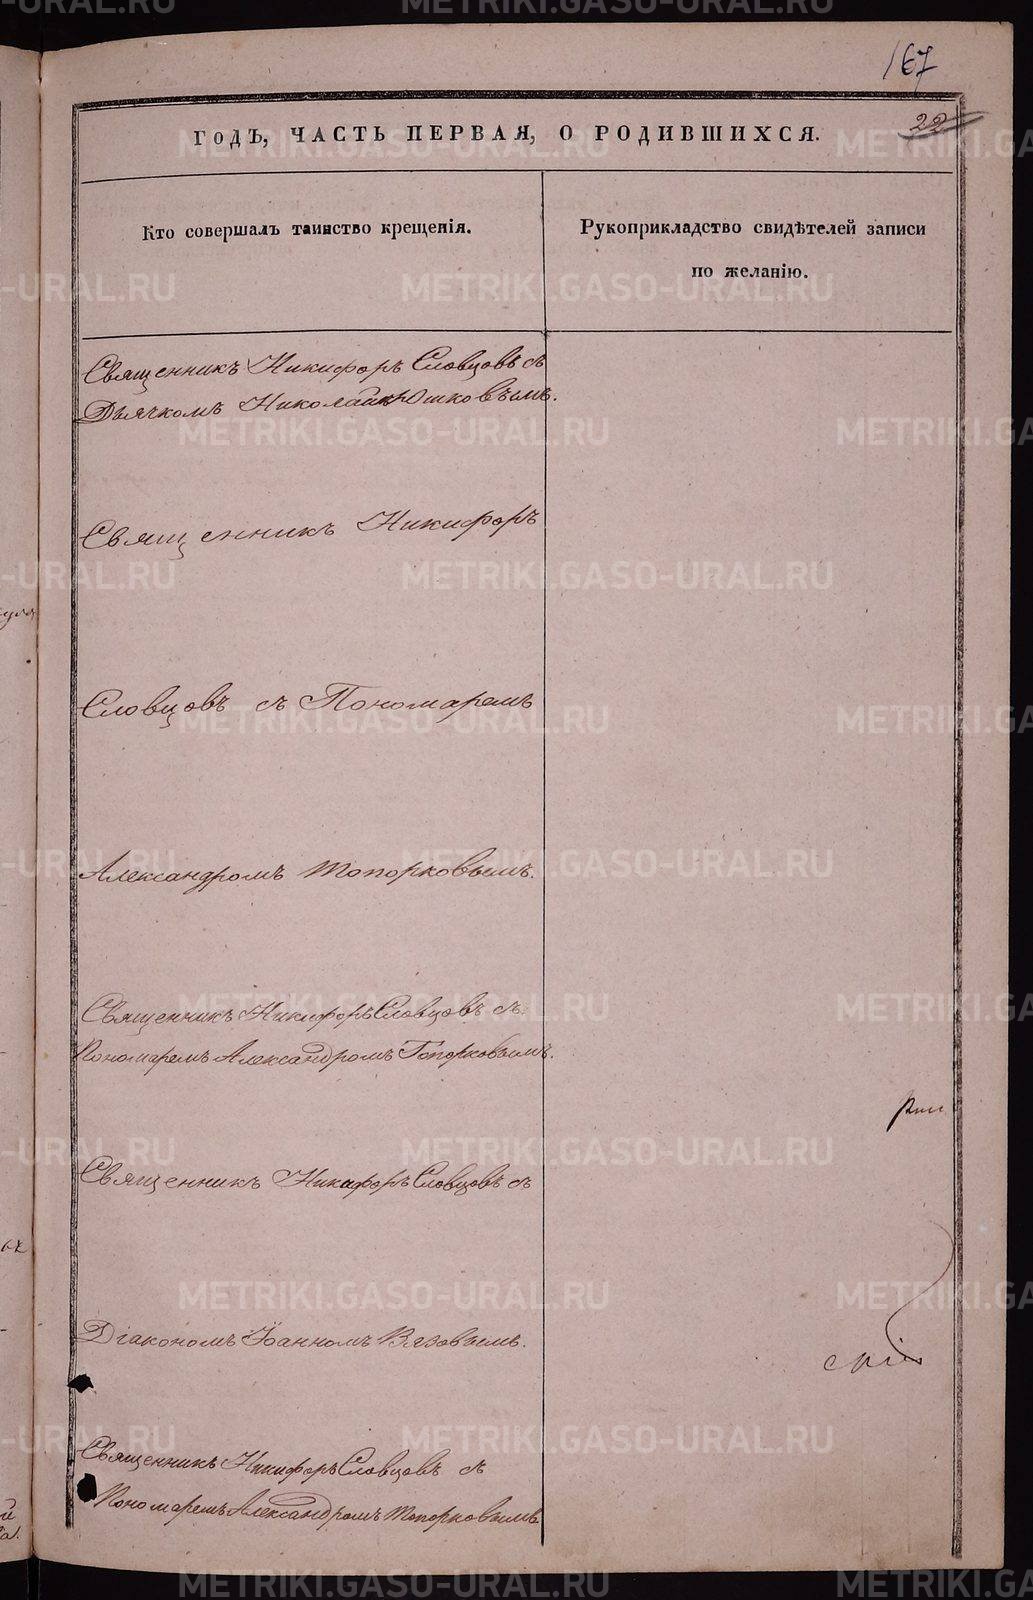 167
22
ГОДЪ, ЧАСТЬ ПЕРВАЯ, О РОДИВШИХСЯ.
Кто совершалъ таинство крещенія.
Рукоприкладство свидѣтелей записи
по желанію.
Священникъ Никифоръ Словцовъ съ
Дьячкомъ Николаемъ Юшковымъ.
Священникъ Никифоръ
Словцовъ съ Пономаремъ
Александромъ Топорковымъ.
Священникъ Никифоръ Словцовъ съ
Пономаремъ Александромъ Топорковымъ.
Священникъ Никифоръ Словцовъ съ
Діакономъ Іоанномъ Вязовымъ.
Священникъ Никифоръ Словцовъ съ
Пономаремъ Александромъ Топорковымъ
METRIKI.GASO-URAL.RU